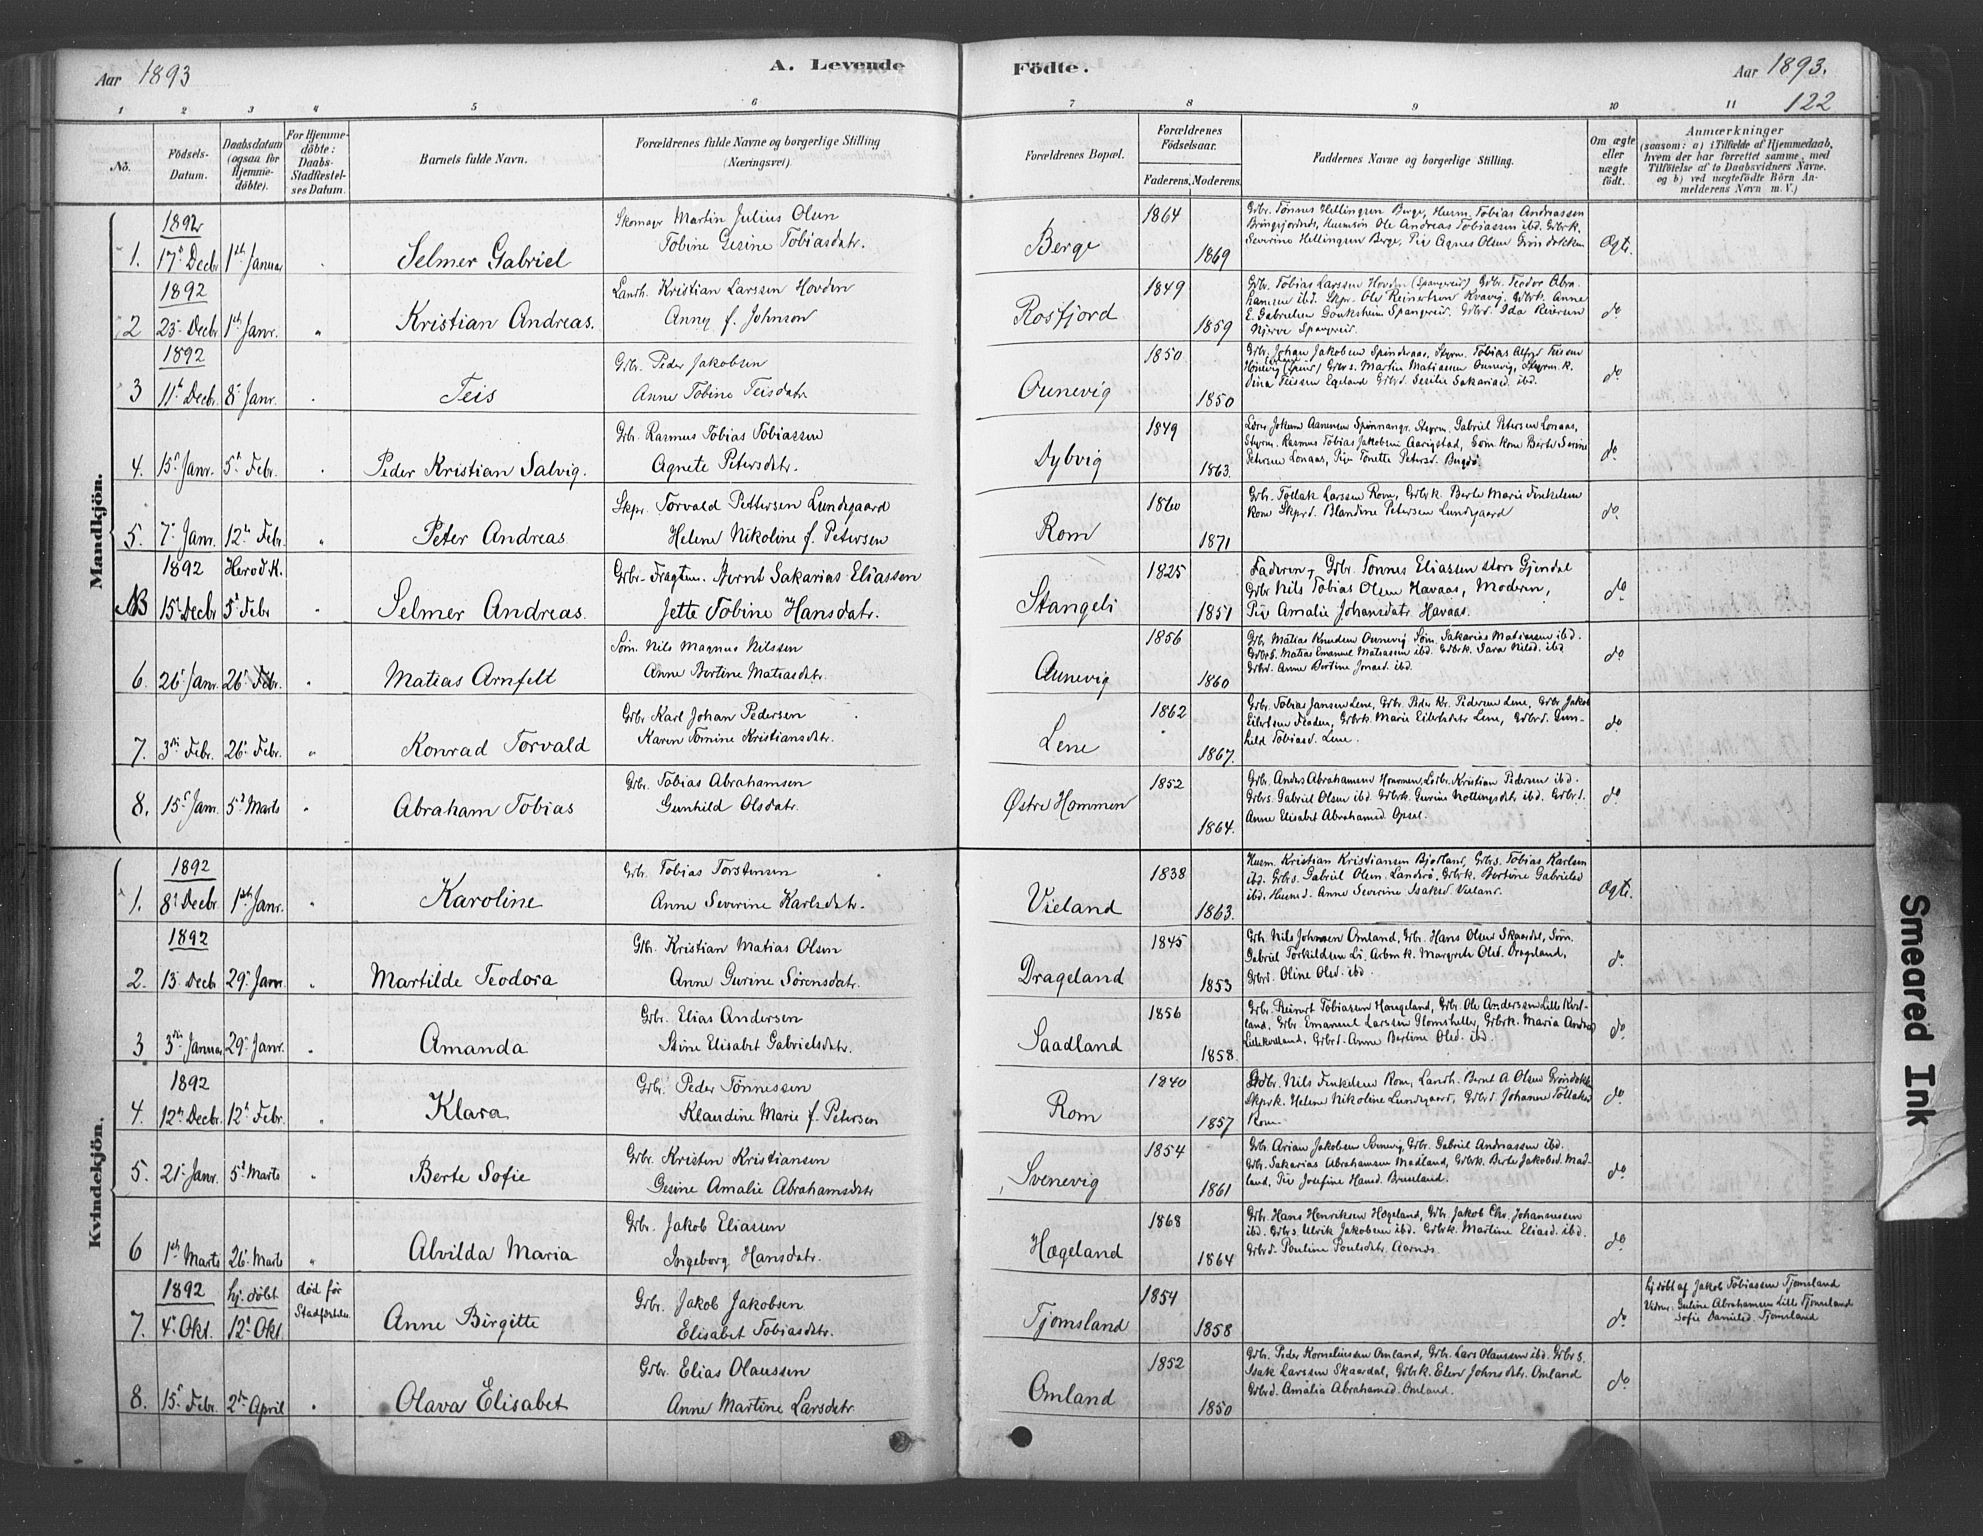 Aar 1893
A. Levende
Födte.
Aar 1893.
122
1 2 3 4 5 6 7 8 9 10 11
No.
Födsels-
Datum.
Daabsdatum
(ogsaa for
Hjemme-
döbte).
For Hjemme-
döbte:
Daabs-
Stadfæstel-
ses Datum.
Barnets fulde Navn.
Forældrenes fulde Navne og borgerlige Stilling
(Næringsvei).
Forældrenes Bopæl.
Forældrenes
Födselsaar.
Faderens. Moderens.
Faddernes Navne og borgerlige Stilling.
Om ægte
eller
uægte
födt.
Anmærkninger
(saasom: a) i Tilfælde af Hjemmedaab,
hvem der har forrettet samme, med
Tilföielse af to Daabsvidners Navne.
og b) ved uægtefödte Börn An-
melderens Navn m. V.)
Mandkjön.
1892
1. 17d Decbr 1ste Januar
Selmer Gabriel
Skomagr Martin Julius Olsen
Tobine Gesine Tobiasdatr.
Berge
1864
1869
Grbr. Tønnes Hellingsen Berge, Husm. Tobias Andreassen
Bringsjordnes, Husmsøn Ole Andreas Tobiassen ibd. Grbrk.
Severine Hellingsen Berge, Pige Agnes Olsen Grøndokken
Ægte.
1892
2 25 Decbr 1ste Janr.
Kristian Andreas.
Landh. Kristian Larssen Hovden
Anny f. Johnson
Rosfjord
1849
1859
Grbr. Tobias Larssen Hovden (Spangereid) Grbr. Teodor Abra-
hamsen ibd. Skpr. Ole Reinertsen Kvavig, Grbrk. Anne
E. Gabrielsen Spangreid. Grbrd. Ida
Njerve Spangreid.
do
1892
3 11te Decbr. 8de Janr.
Teis
Grbr. Peder Jakobsen
Anne Tobine Teisdatr
Ounevig
1850
1850
Grbr. Johan Jakobsen Styrm. Tobias
Grbrs. Martin Matiassen Ounevig, Styrm. k.
Teissen Egeland Grbrd. Sesilie Sakariasd. ibd.
do
4. 15de Janr. 5te Febr.
Peder Kristian Salvig.
Grbr. Rasmus Tobias Tobiassen
Agnete Petersdatr.
Dybvig
1849
1863.
Jokum Aanensen Spønnangr. Styrm. Gabriel Petersen Lonaas,
Styrm. Rasmus Tobias Jakobsen Aarigstad, Søm. kone Berte Serine
Petersen Lonaas, Pige Tonette Petersd.
do.
5. 7de Janr. 12te Febr.
Peter Andreas
Skpr. Torvald Pettersen Lundegaard
Helene Nikoline f. Petersen
Rom
1860
1871
Grbr. Tollak Larssen Rom, Grbrk. Berte Marie Finkelsen
Rom Skprd. Blandine Petersen Lundegaard
do.
1892 Herod K.
NB 15de Decbr 5te Febr
Selmer Andreas.
Grbr. Fragtem. Bernt Sakarias Eliassen
Jette Tobine Hansdatr.
Stangeli
1825
1851
Faderen, Grbr. Tønnes Eliassen store Gjendal
Grbr Nils Tobias Olsen Havaas, Moderen,
Pige Amalie Johansdatr. Havaas.
do.
6. 26de Janr. 26de Febr.
Matias Arnfelt
Søm. Nils Magnus Nilssen
Anne Bertine Matiasdatr.
Aunevig
1856
1860
Grbr. Matias Knudsen Ounevig, Søm. Sakarias Matiassen ibd.
Grbrs. Matias Emanuel Matiassen ibd. Grbrk. Sara Nilsd. ibd
Grbrd. Anne Bertine Jonasd. ibd.
do
7. 3die Febr. 26de Febr.
Konrad Torvald
Grbr Karl Johan Pedersen
Karen Tomine Kristiansdtr.
Lene
1862
1867.
Grbr. Tobias Jansen Lene, Grbr. Peder Kr. Pedersen Lene, Grbr Jakob
Eilertsen Fladen, Grbrk. Marie Eilertsdatr Lene, Grbrd. Gun-
hild Tobiasd. Lene.
do
8. 15de Janr. 5te Marts
Abraham Tobias
Grbr. Tobias Abrahamsen
Gunhild Olsdatr.
Østre Hommen
1852
1864.
Grbr. Anders Abrahamsen Hommen, Kristian Pedersen ibd.
Grbrs. Gabriel Olsen ibd. Grbrk. Gurine ibd. Grbrd.
Anne Elisabet Abrahamsd. Opsal.
do
Kvindekjön.
1892
1. 8de Decbr 1ste Janr.
Karoline
Grbr. Tobias Torstensen
Anne Severine Karlsdatr.
Vieland
1838
1863.
Husm. Kristian Kristiansen Bjorland, Grbrs. Tobias Karlsen
ibd. Grbrs. Gabriel Olsen Grbrk. Bertine Gabrielsd
ibd. Husmd. Anne Severine Isaksd. Vieland.
Ægte.
1892
2. 13. Decb 29de Janr
Martilde Teodora
Grbr. Kristian Matias Olsen
Anne Gurine Sørensdatr.
Drageland
1845
1853
Grbr. Nils Johnsen Omland, Grbr. Hans Olsen Skaardal, Søm.
Gabriel Torkildsen Li. Arbm k. Margrete Olsd. Drageland,
Grbrd. Oline Olsd. ibd.
do.
3 3die Januar 29de Janr.
Amanda
Grbr. Elias Andersen
Stine Elisabet Gabrielsdatr.
Saadland
1856
1858.
Grbr. Reinert Tobiassen Haugeland, Grbr Ole Anderssen Lille Kvil-
land, Grbr. Emanuel Larssen Grbrk. Maria
Grbrd. Anne Bertine Olsd. ibd.
do
1892
4. 12te Decbr. 12te Febr.
Klara
Grbr. Peder Tønnessen
Klaudine Marie f. Petersen
Rom
1840
1857
Grbr. Nils Finkelsen Rom, Landh. Bernt A Olsen Grøndokken
Skprk. Helene Nikoline Lundegaard, Grbrd. Johanne Tollaksd
Rom.
do.
5. 21de Janr. 5te Marts
Berte Sofie
Grbr. Kristen Kristiansen
Gesine Amalie Abrahamsdatr
Svenevig
1854
1861
Grbr. Arian Jakobsen Svenevig, Grbr. Gabriel Andreassen ibd.
Grbr. Sakarias Abrahamsen Madland, Grbrk. Berte Jakobsd. Mad-
land, Pige Josefine Hansd. Bruseland.
do
6 1ste Marts 26de Marts
Alvilda Maria
Grbr. Jakob Eliassen
Ingeborg Hansdatr.
Hægeland
1868
1864
Grbr. Hans Henriksen Hægeland, Grbr Jakob Chr. Johannessen
ibd. Grbrs. Ulrik Jakobsen ibd. Grbrk. Martine Eliasd. ibd.
Grbrd. Pauline Poulsdtr. Aarnes.
do
1892 hj. døbt død før
7. 4de Okt. 12te Okt. Stadfæstelsen
Anne Birgitte
Grbr. Jakob Jakobsen
Elisabet Tobiasdtr.
Tjomsland
1854
1858
do
hj. døbt af Jakob Tobiassen Tjomsland
Vidner: Guline Abrahamsen Lille Tjomsland
Sofie Danielsd. Tjomsland
8. 15de Febr. 2den April
Olava Elisabet
Grbr. Elias Olaussen
Anne Martine Larsdatr.
Omland
1852
1850
Grbr. Peder Korneliussen Omland, Grbr. Lars Olaussen ibd. Grbrs.
Isak Larssen Skaardal, Grbrk. Elen Johnsdtr. Omland
Grbrd. Amalia Abrahamsd. Omland.
do
Smeared Ink